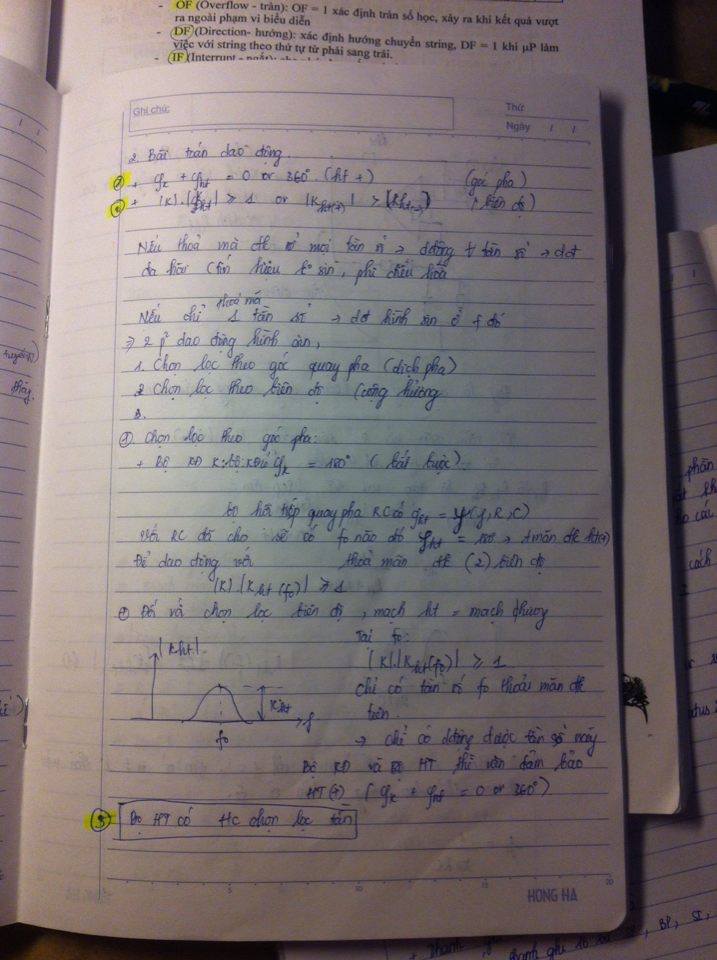 OF (Overflow - tràn): OF = 1 xác định tràn số học, xảy ra khi kết quả vượt
ra ngoài phạm vi biểu diễn
- DF (Direction- hướng): xác định hướng chuyển string, DF = 1 khi μP làm
việc với string theo thứ tự từ phải sang trái.
- IF (Interrupt - ngắt):
Ghi chú:
Thứ
Ngày / /
2. Bài toán dao động.
+ φk + φht = 0 or 360° (ht +) (góc pha)
+ |K|.|Kht| ≥ 1 or |Kht(+)| > |Kht(-)| (biên độ)
Nếu thoả mã đk ở mọi tần số → dđộng ∀ tần số → dđ
đa hài (tín hiệu ko sin, phi điều hoà
thoả mã
Nếu chỉ 1 tần số → dđ hình sin ở f đó
⇒ 2 p² dao động hình sin,
1. Chọn lọc theo góc quay pha (dịch pha)
2. Chọn lọc theo biên độ (cộng hưởng
3.
① Chọn lọc theo góc pha:
+ Bộ KĐ K: φk = 180° (bắt buộc)
bộ hồi tiếp quay pha RC có φht = φ(f, R, C)
Với RC đã cho sẽ có f0 nào đó φht = 180° → t mãn đk ht(+)
Để dao động với thoả mãn đk (2) biên độ
|K|.|Kht(f0)| ≥ 1
+ Đối và chọn lọc biên độ, mạch ht = mạch
|Kht|
Kht
f
f0
Tại f0:
|K|.|Kht(f0)| ≥ 1
chỉ có tần số f0 thoải mãn đk
trên.
→ chỉ có dđộng được tần số này
Bộ KĐ và Bộ HT thì vẫn đảm bảo
HT(+) (φk + φht = 0 or 360°)
3 Bộ HT có HC chọn lọc tần
5
10
15
20
HONG HA